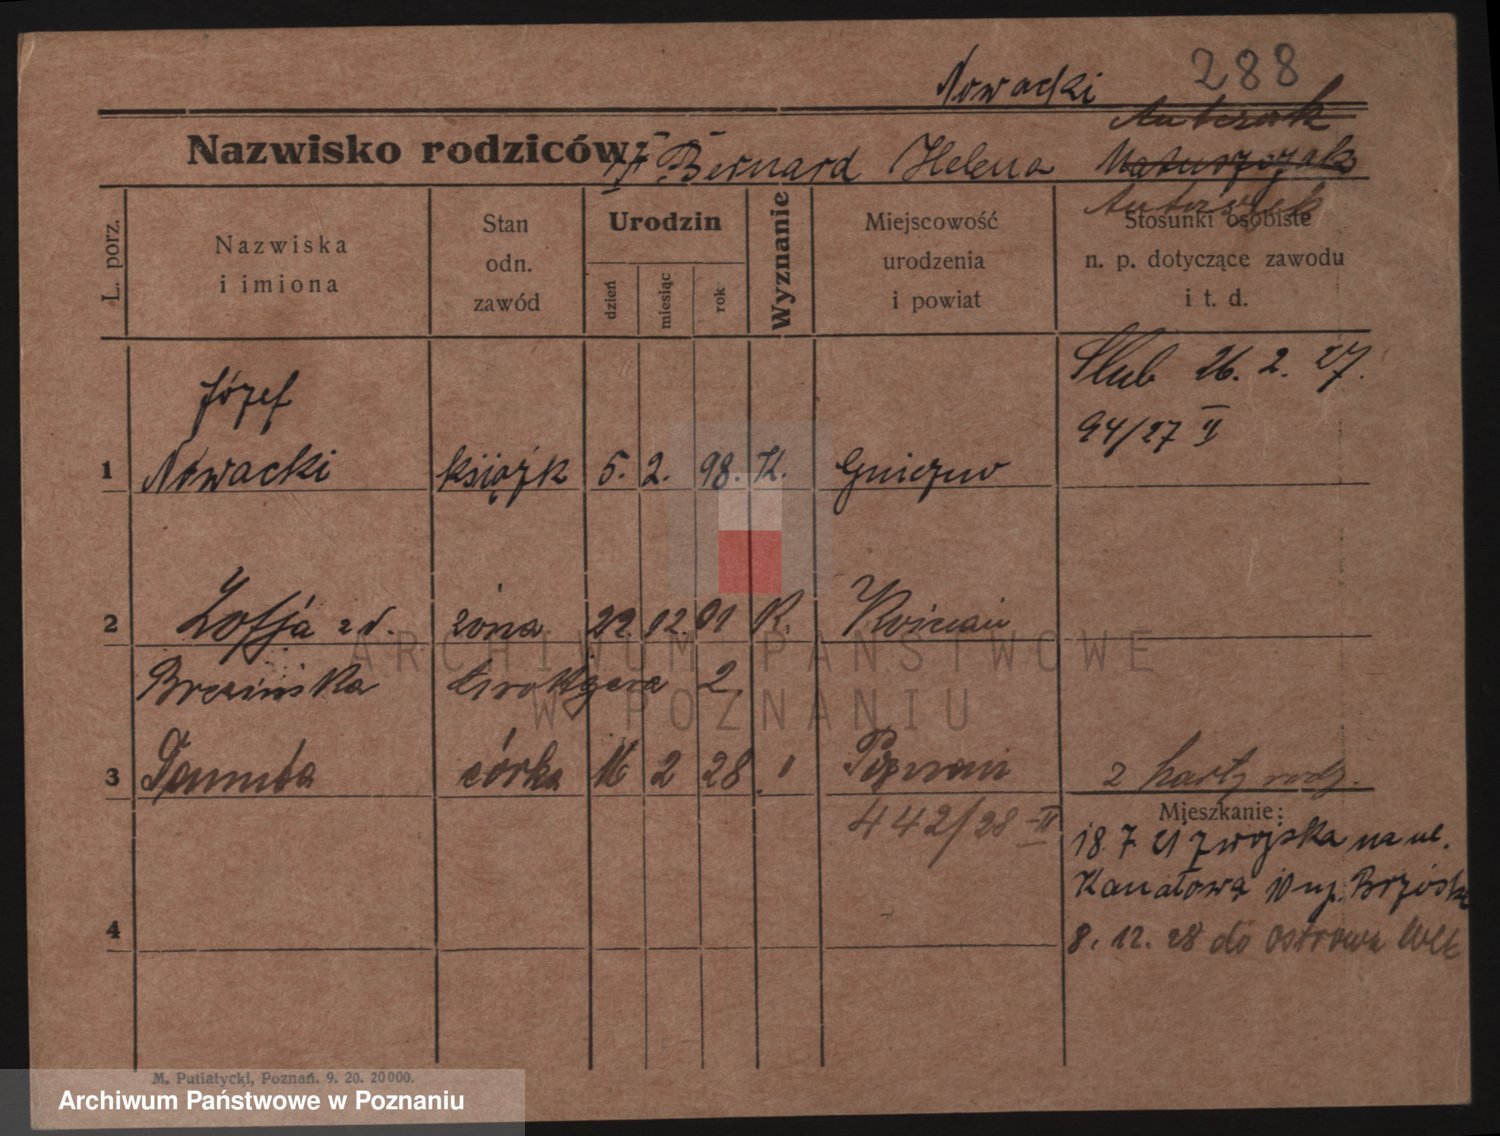 288
Nowacki
Antczak
Nazwisko rodziców: Bernard Helena Matuszczak
Antczak
L. porz.
Nazwiska i imiona
Stan odn. zawód
Urodzin
dzień
miesiąc
rok
Wyznanie
Miejscowość urodzenia i powiat
Stosunki osobiste n. p. dotyczące zawodu i t. d.
Józef
Ślub 26. 2. 27.
94/27 II
1 Nowacki książk 5. 2. 98. K. Gniezno
2 Zofja zd. żona 22. 12. 01 K. Kościan
Brzezińska 2
3 Danuta córka 16 2 28 Poznań 2 karty rodz.
442/28 II
Mieszkanie:
18. 7. 21 z wojska na ul.
Kanałową 10
4
8. 12. 28 do Ostrowa Wlk
M. Putiatycki, Poznań. 9. 20. 20000.
ARCHIWUM PAŃSTWOWE
W POZNANIU
Archiwum Państwowe w Poznaniu